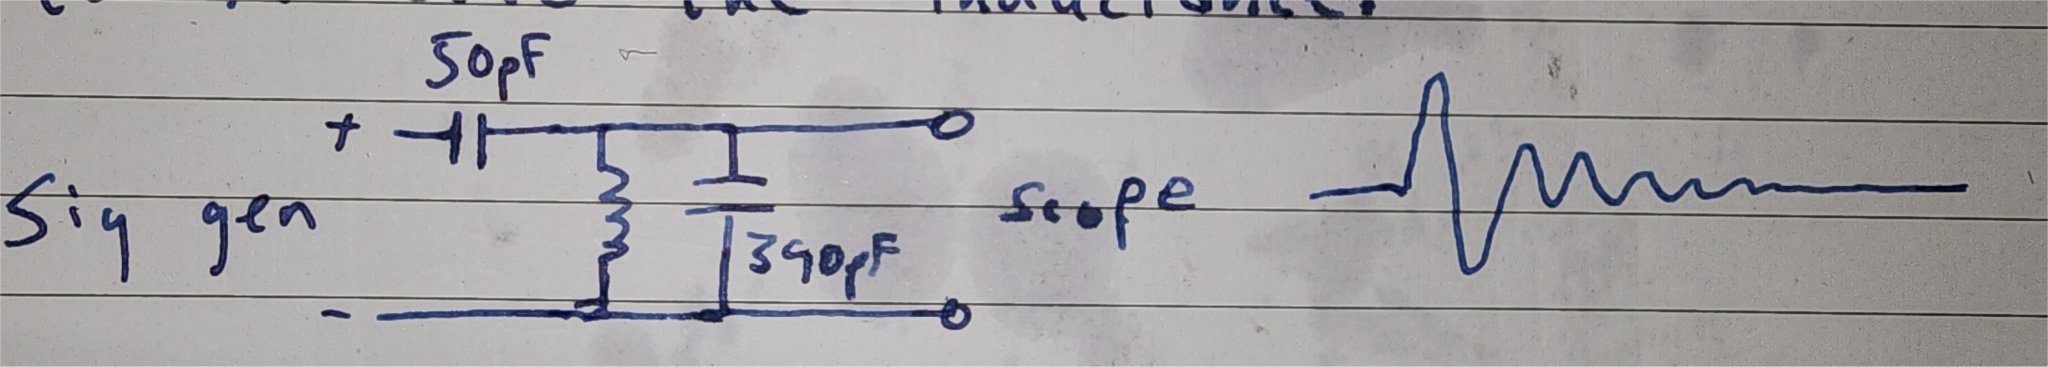 the inductance.
50pF
+
Sig gen
scope
390pF
-